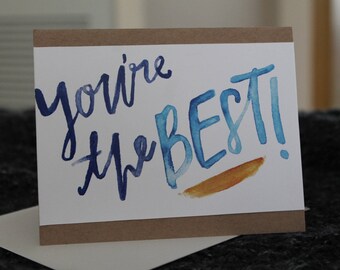 You're
the BEST!